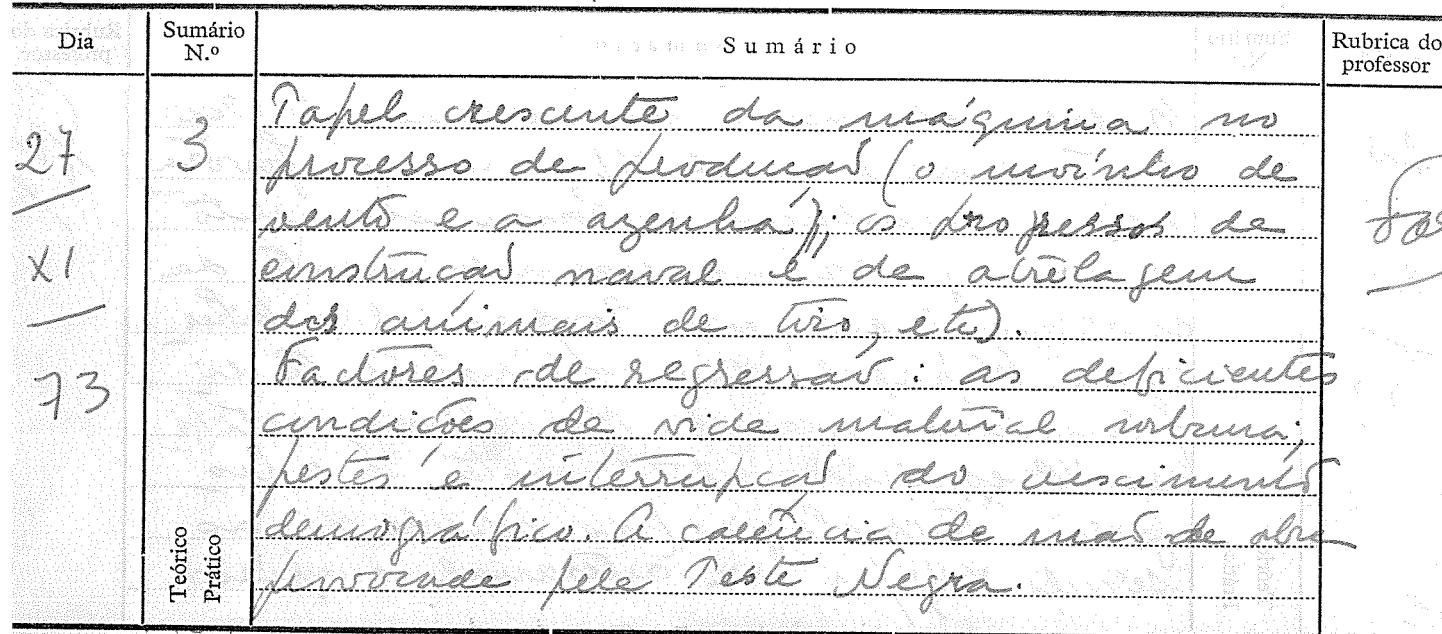 Dia
Sumário N.º
Sumário
Rubrica do professor
27
XI
73
3
Teórico
Prático
Papel crescente da máquina no
processo de produção (o moinho de
vento e a azenha); os progressos de
construção naval e de atrelagem
dos animais de tiro, etc).
Factores de regressão: as deficientes
condições de vida material urbana;
pestes e interrupção do crescimento
demográfico. A carência de mão de obra
provocada pela Peste Negra.